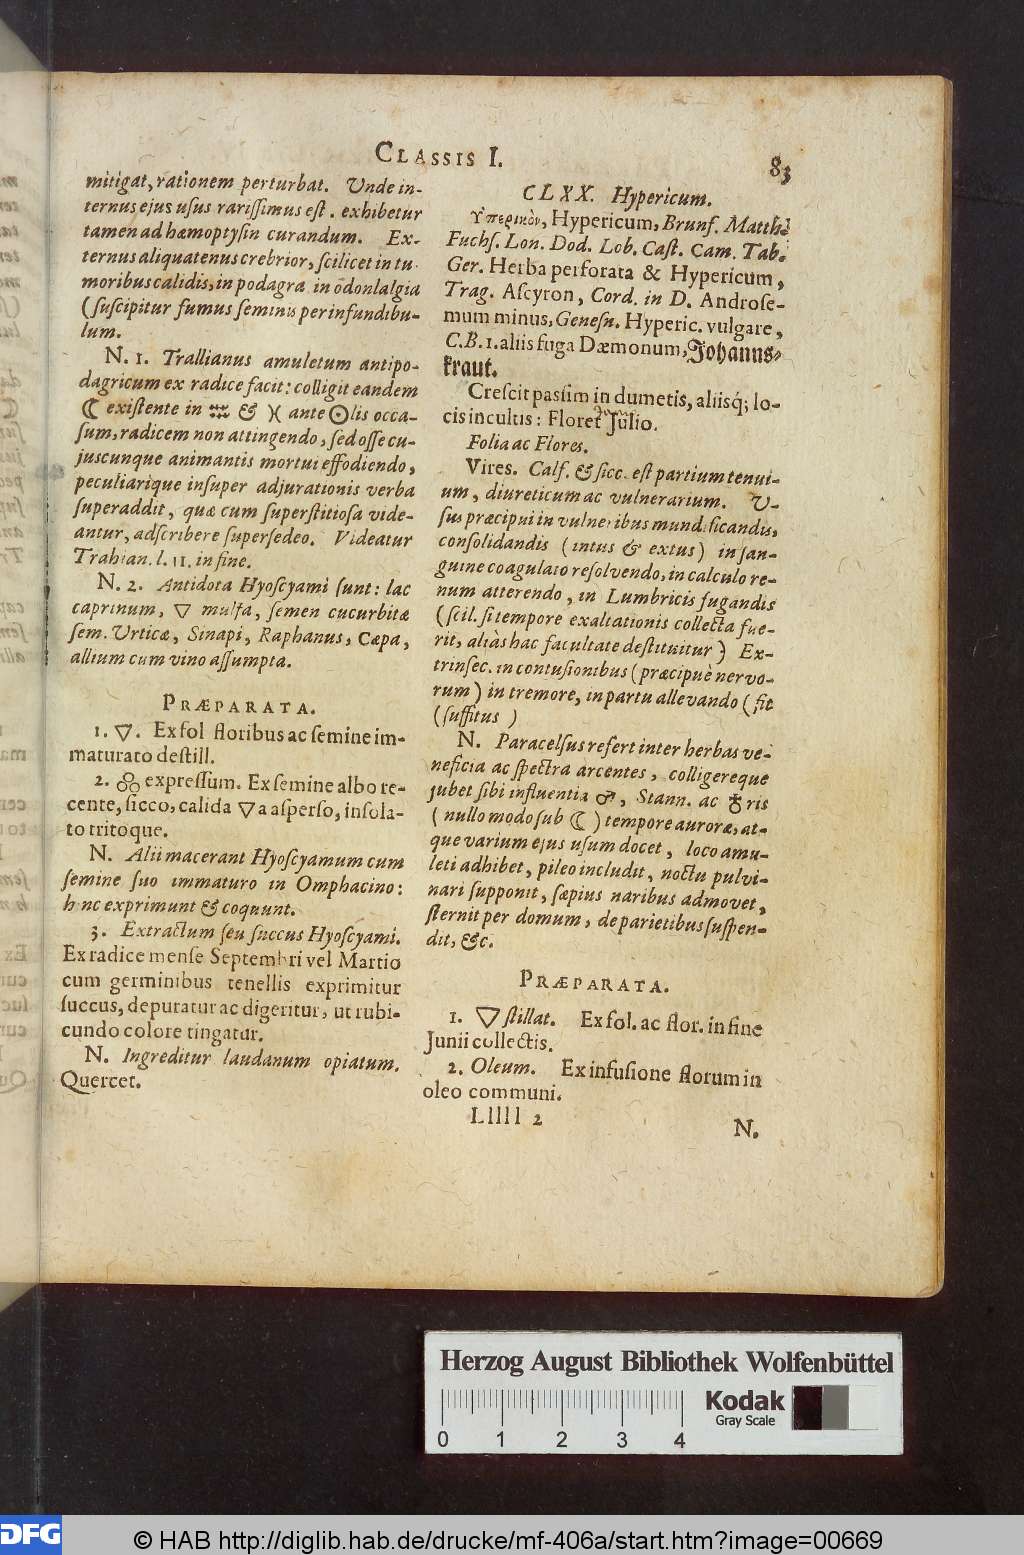 CLASSIS I.
83
mitigat, rationem perturbat. Unde in-
ternus ejus usus rarißimus est. exhibetur
tamen ad hæmoptysin curandum. Ex-
ternus aliquatenus crebrior, scilicet in tu-
moribus calidis, in podagra in odonlalgia
(suscipitur fumus seminis per infundibu-
lum.
N. 1. Trallianus amuletum antipo-
dagricum ex radice facit: colligit eandem
☾ existente in ♒ & ♓ ante ☉lis occa-
sum, radicem non attingendo, sed osse cu-
juscunque animantis mortui effodiendo,
peculiarique insuper adjurationis verba
superaddit, quæ cum superstitiosa vide-
antur, adscribere supersedeo. Videatur
Trahian. l. 11. in fine.
N. 2. Antidota Hyoscyami sunt: lac
caprinum, ▽ mulsa, semen cucurbitæ
sem. Urticæ, Sinapi, Raphanus, Cæpa,
allium cum vino assumpta.
PRÆPARATA.
1. ▽. Ex fol floribus ac semine im-
maturato destill.
2. expressum. Ex semine albo re-
cente, sicco, calida ▽a asperso, insola-
to tritoque.
N. Alii macerant Hyoscyamum cum
semine suo immaturo in Omphacino:
hinc exprimunt & coquunt.
3. Extractum seu succus Hyoscyami.
Ex radice mense Septembri vel Martio
cum germinibus tenellis exprimitur
succus, depuratur ac digeritur, ut rubi-
cundo colore tingatur.
N. Ingreditur laudanum opiatum.
Quercet.
CLXX. Hypericum.
Ὑπερικὸν, Hypericum, Brunf. Matth.
Fuchs. Lon. Dod. Lob. Cast. Cam. Tab.
Ger. Herba perforata & Hypericum,
Trag. Ascyron, Cord. in D. Androse-
mum minus, Genesn. Hyperic. vulgare,
C.B. 1. aliis fuga Dæmonum, Johanns-
kraut.
Crescit passim in dumetis, aliisq; lo-
cis incultis: Floret Julio.
Folia ac Flores.
Vires. Calf. & sicc. est partium tenui-
um, diureticum ac vulnerarium. U-
sus præcipui in vulneribus mundificandis,
consolidandis (intus & extus) in san-
guine coagulato resolvendo, in calculo re-
num atterendo, in Lumbricis fugandis
(scil. si tempore exaltationis collecta fue-
rit, aliàs hac facultate destituitur) Ex-
trinsec. in contusionibus (præcipuè nervo-
rum) in tremore, in partu allevando (fit
(suffitus)
N. Paracelsus refert inter herbas ve-
neficia ac spectra arcentes, colligereque
jubet sibi influentia ♂, Stann. ac ♁ris
(nullo modo sub ☾) tempore auroræ, at-
que varium ejus usum docet, loco amu-
leti adhibet, pileo includit, noctu pulvi-
nari supponit, sæpius naribus admovet,
sternit per domum, de parietibus suspen-
dit, &c.
PRÆPARATA.
1. ▽ stillat. Ex fol. ac flor. in fine
Junii collectis.
2. Oleum. Ex infusione florum in
oleo communi.
Lllll 2
N.
Herzog August Bibliothek Wolfenbüttel
Kodak
Gray Scale
0 1 2 3 4
DFG
© HAB http://diglib.hab.de/drucke/mf-406a/start.htm?image=00669